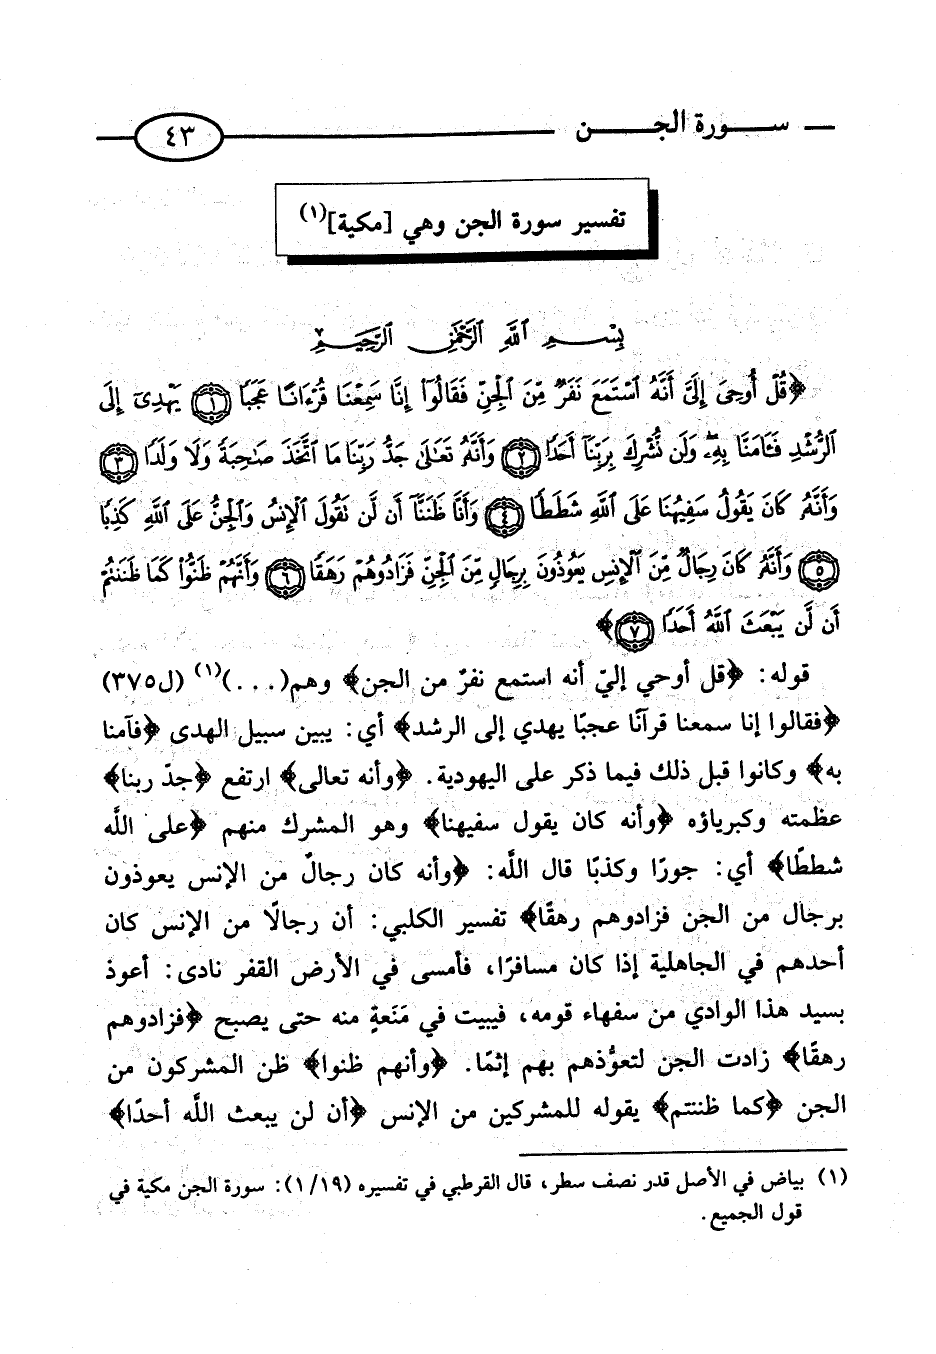 سورة الجن ٤٣
تفسير سورة الجن وهي [مكية](١)
بِسْمِ ٱللَّهِ ٱلرَّحْمَٰنِ ٱلرَّحِيمِ
﴿قُلْ أُوحِىَ إِلَىَّ أَنَّهُ ٱسْتَمَعَ نَفَرٌ مِّنَ ٱلْجِنِّ فَقَالُوٓا۟ إِنَّا سَمِعْنَا قُرْءَانًا عَجَبًا ١ يَهْدِىٓ إِلَى
ٱلرُّشْدِ فَـَٔامَنَّا بِهِۦ وَلَن نُّشْرِكَ بِرَبِّنَآ أَحَدًا ٢ وَأَنَّهُۥ تَعَٰلَىٰ جَدُّ رَبِّنَا مَا ٱتَّخَذَ صَٰحِبَةً وَلَا وَلَدًا ٣
وَأَنَّهُۥ كَانَ يَقُولُ سَفِيهُنَا عَلَى ٱللَّهِ شَطَطًا ٤ وَأَنَّا ظَنَنَّآ أَن لَّن نَقُولَ ٱلْإِنسُ وَٱلْجِنُّ عَلَى ٱللَّهِ كَذِبًا
٥ وَأَنَّهُۥ كَانَ رِجَالٌ مِّنَ ٱلْإِنسِ يَعُوذُونَ بِرِجَالٍ مِّنَ ٱلْجِنِّ فَزَادُوهُمْ رَهَقًا ٦ وَأَنَّهُمْ ظَنُّوا۟ كَمَا ظَنَنتُمْ
أَن لَّن يَبْعَثَ ٱللَّهُ أَحَدًا ٧﴾
قوله: ﴿قل أوحي إليّ أنه استمع نفرٌ من الجن﴾ وهم(...)(١) (ل٣٧٥)
﴿فقالوا إنا سمعنا قرآنًا عجبًا يهدي إلى الرشد﴾ أي: يبين سبيل الهدى ﴿فآمنا
به﴾ وكانوا قبل ذلك فيما ذكر على اليهودية. ﴿وأنه تعالى﴾ ارتفع ﴿جدّ ربنا﴾
عظمته وكبرياؤه ﴿وأنه كان يقول سفيهنا﴾ وهو المشرك منهم ﴿على اللَّه
شططًا﴾ أي: جورًا وكذبًا قال اللَّه: ﴿وأنه كان رجالٌ من الإنس يعوذون
برجال من الجن فزادوهم رهقًا﴾ تفسير الكلبي: أن رجالًا من الإنس كان
أحدهم في الجاهلية إذا كان مسافرًا، فأمسى في الأرض القفر نادى: أعوذ
بسيد هذا الوادي من سفهاء قومه، فيبيت في مَنَعةٍ منه حتى يصبح ﴿فزادوهم
رهقًا﴾ زادت الجن لتعوُّذهم بهم إثمًا. ﴿وأنهم ظنوا﴾ ظن المشركون من
الجن ﴿كما ظننتم﴾ يقوله للمشركين من الإنس ﴿أن لن يبعث اللَّه أحدًا﴾
(١) بياض في الأصل قدر نصف سطر، قال القرطبي في تفسيره (١/١٩): سورة الجن مكية في
قول الجميع.